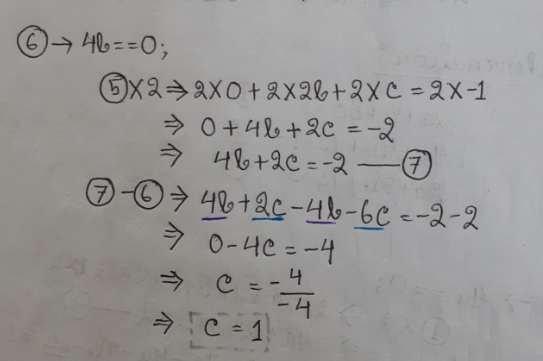 ⑥→ 4b==0;
⑤×2⇒2×0+2×2b+2×c=2×-1
⇒ 0+4b+2c=-2
⇒ 4b+2c=-2 —⑦
⑦-⑥⇒ 4b+2c-4b-6c=-2-2
⇒ 0-4c=-4
⇒ c=-4/-4
⇒ c=1